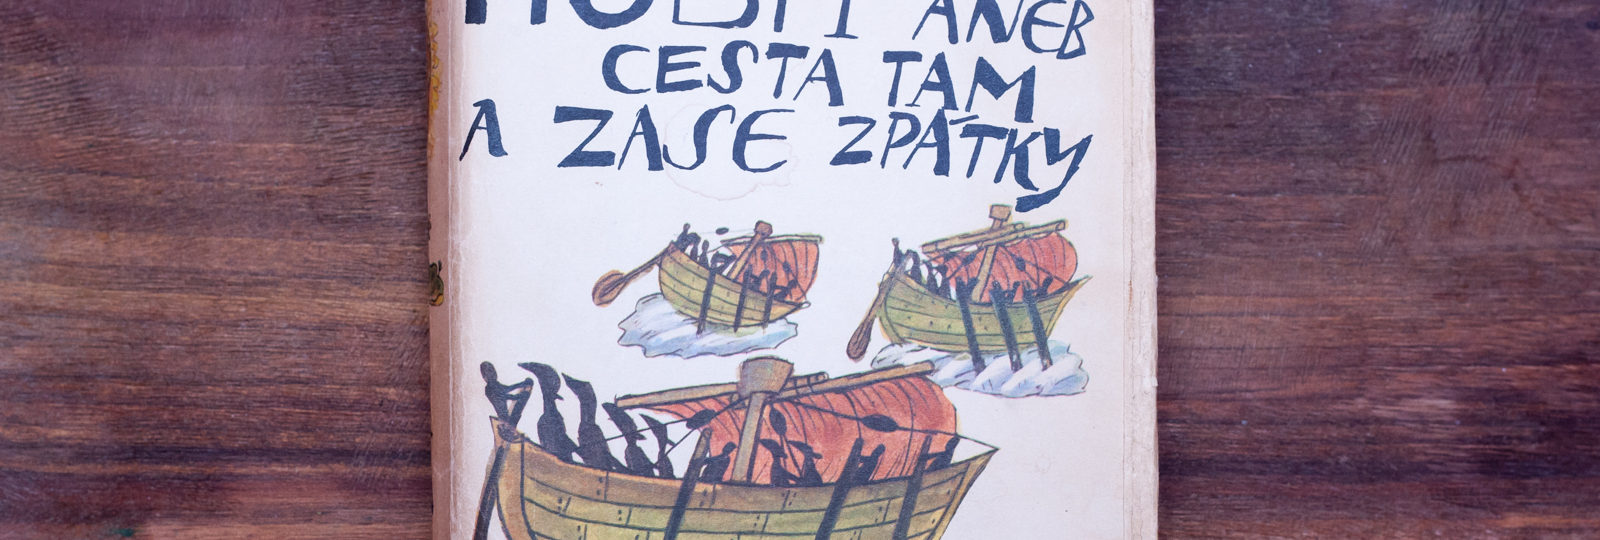 HOBIT ANEB
CESTA TAM
A ZASE ZPÁTKY